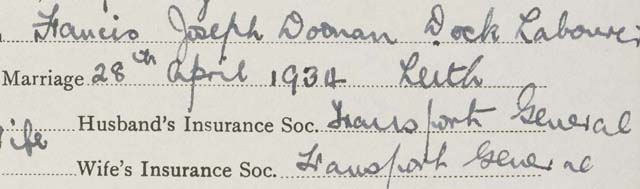 Francis Joseph Doonan Dock Labourer
Marriage 28th April 1934 Leith
Husband's Insurance Soc. Transport General
wife
Wife's Insurance Soc. Transport General